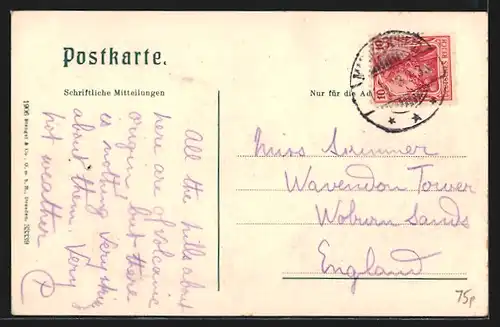 Postkarte.
Schriftliche Mitteilungen
Nur für die Ad
All the hills about
here are of volcanic
origin but there
is nothing
about them. Very
hot weather
Miss Sommer
Wavendon Tower
Woburn Sands
England
1906 Stengel & Co., G. m. b. H., Dresden
10
75p